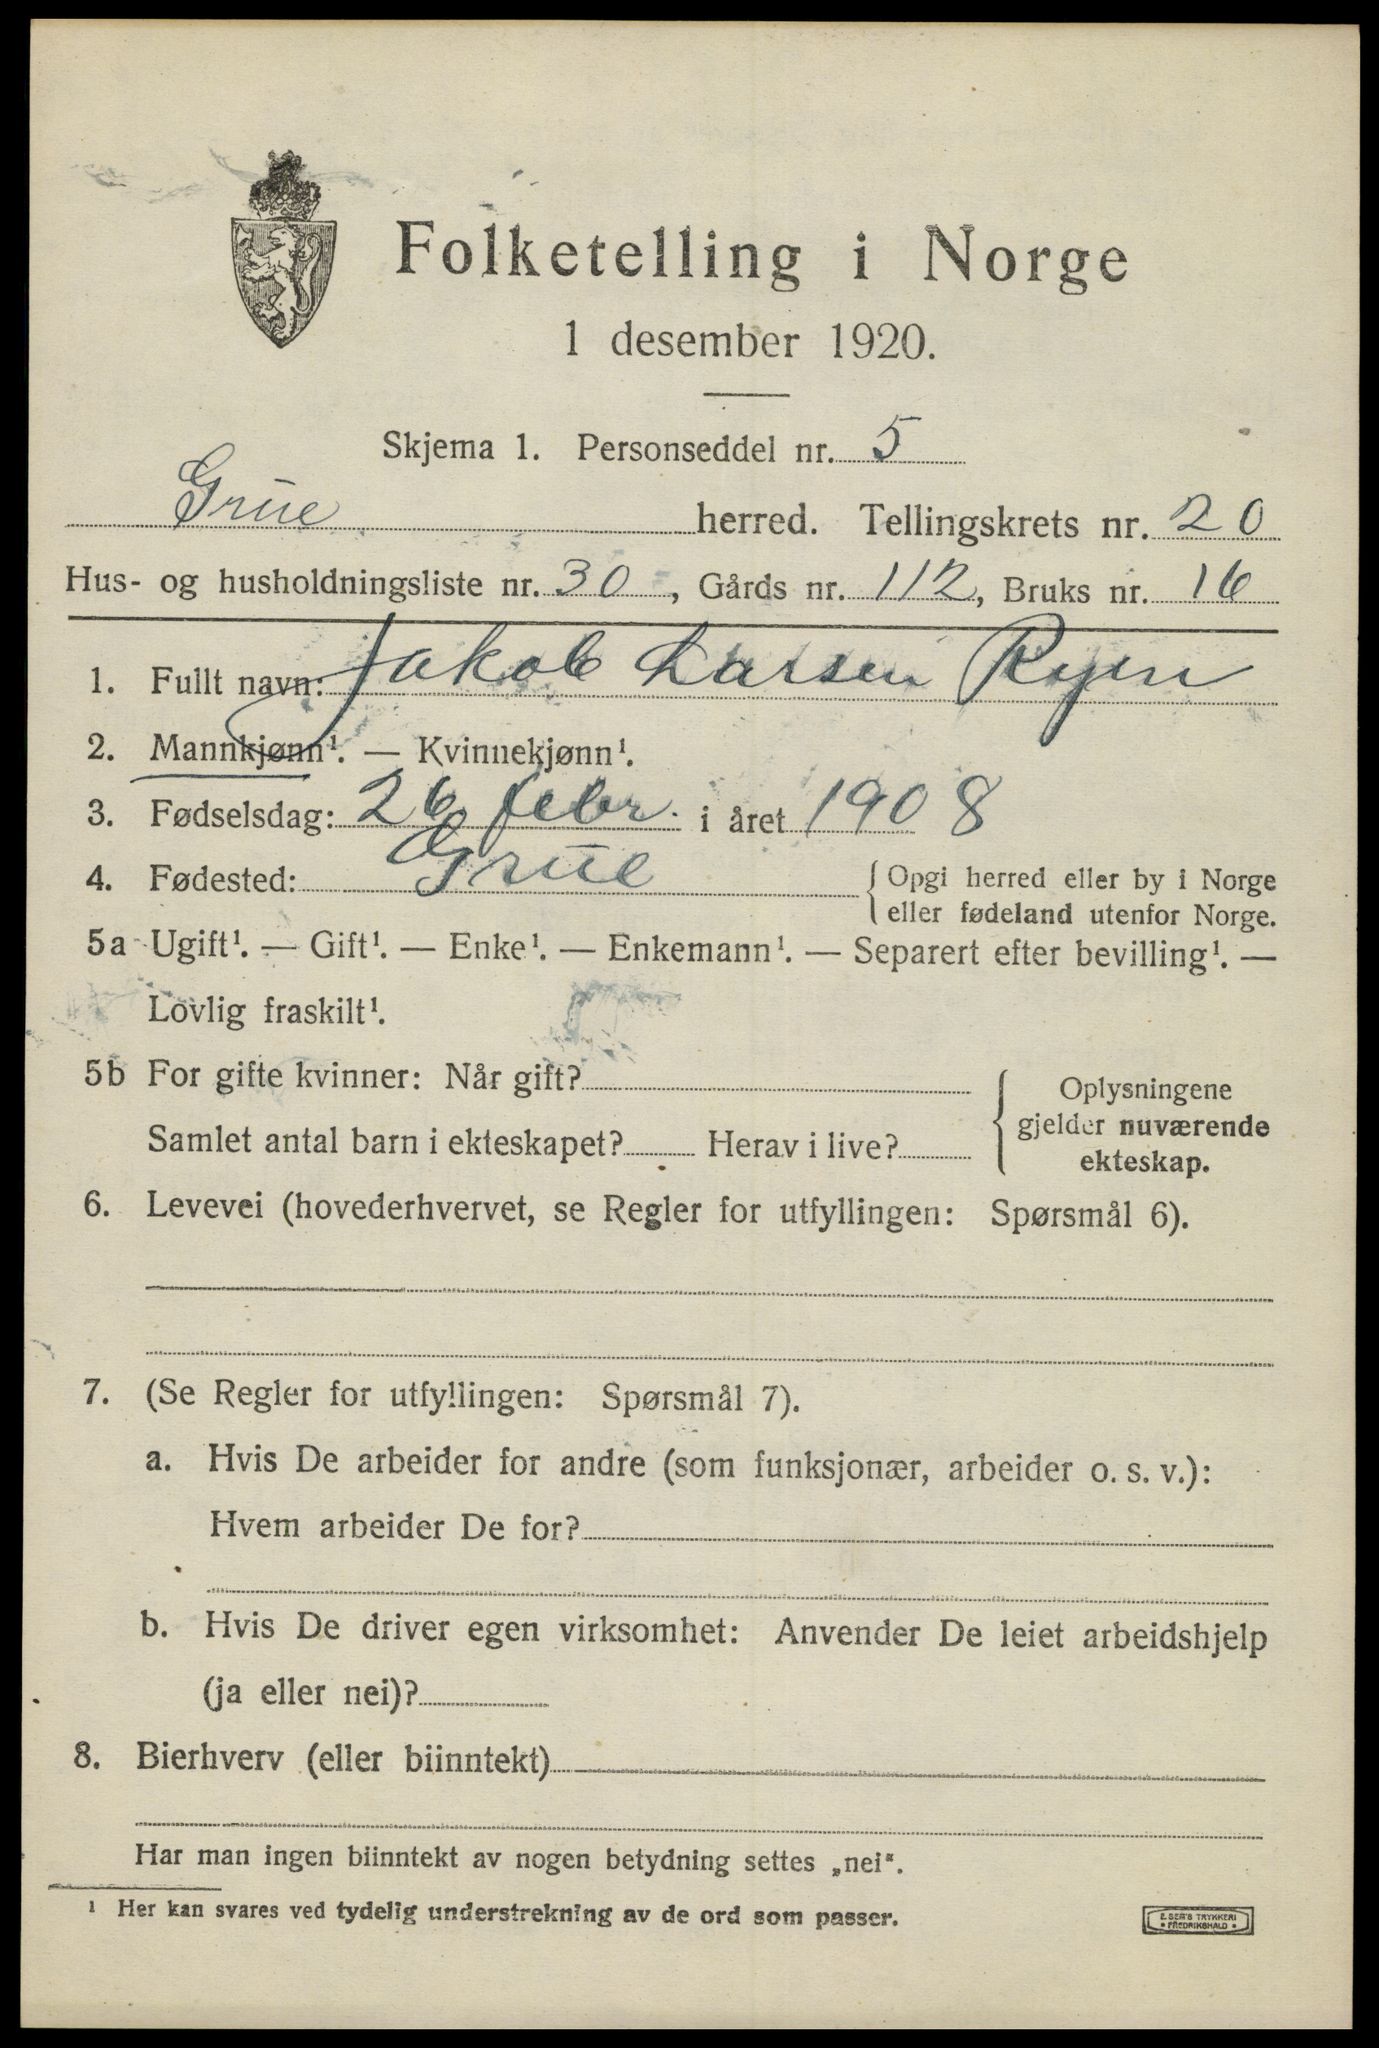 Folketelling i Norge
1 desember 1920.
Skjema 1. Personseddel nr. 5
Grue herred. Tellingskrets nr. 20
Hus- og husholdningsliste nr. 30, Gårds nr. 112, Bruks nr. 16
1. Fullt navn: Jakob Larsen Ryen
2. Mannkjønn¹. — Kvinnekjønn¹.
3. Fødselsdag: 26 febr. i året 1908
4. Fødested: Grue { Opgi herred eller by i Norge
eller fødeland utenfor Norge.
5a Ugift¹. — Gift¹. — Enke¹. — Enkemann¹. — Separert efter bevilling¹. —
Lovlig fraskilt¹.
5b For gifte kvinner: Når gift? { Oplysningene
gjelder nuværende
Samlet antal barn i ekteskapet? Herav i live?
ekteskap.
6. Levevei (hovederhvervet, se Regler for utfyllingen: Spørsmål 6).
7. (Se Regler for utfyllingen: Spørsmål 7).
a. Hvis De arbeider for andre (som funksjonær, arbeider o. s. v.):
Hvem arbeider De for?
b. Hvis De driver egen virksomhet: Anvender De leiet arbeidshjelp
(ja eller nei)?
8. Bierhverv (eller biinntekt)
Har man ingen biinntekt av nogen betydning settes „nei“.
¹ Her kan svares ved tydelig understrekning av de ord som passer.
E. SEM'S TRYKKERI
• FREDRIKSHALD •